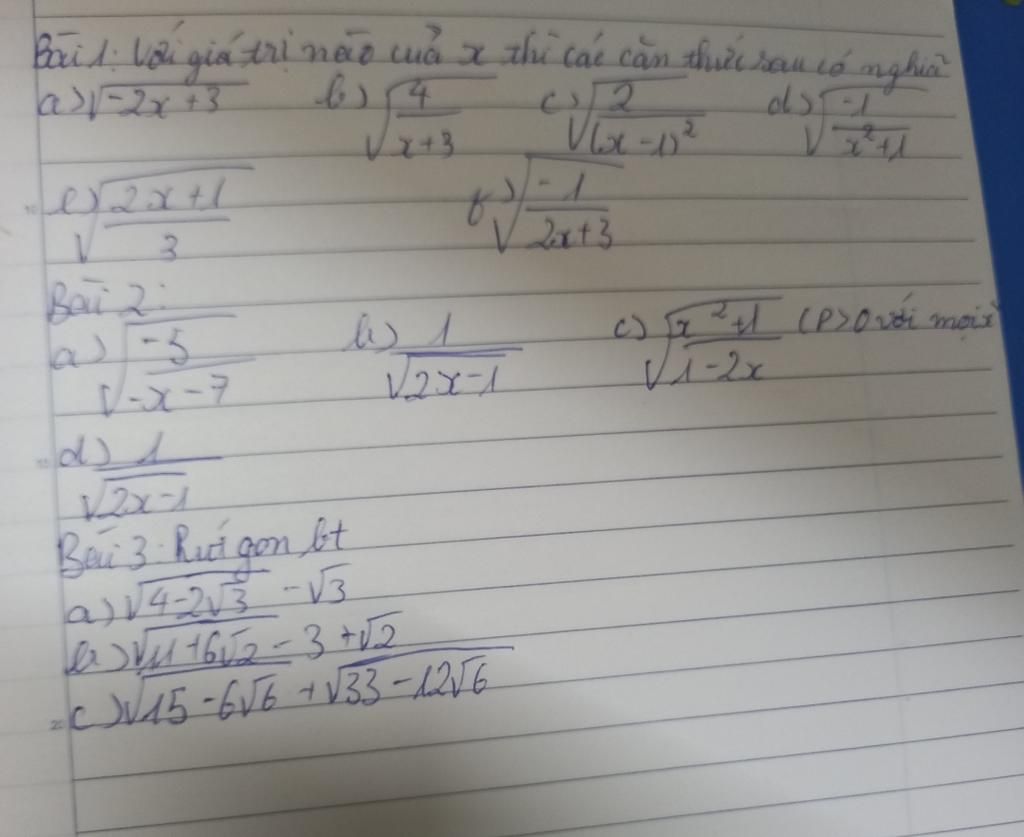 Bài 1: Với giá trị nào của x thì các căn thức sau có nghĩa
a) √(-2x+3) b) √(4/(x+3)) c) √(2/(x-1)²) d) √(-1/(x²+1))
e) √((2x+1)/3) f) √(-1/(2x+3))
Bài 2:
a) √(-5/(-x-7)) b) 1/√(2x-1) c) √((x²+1)/(1-2x)) (P>0 với mọi x
d) 1/√(2x-1)
Bài 3: Rút gọn bt
a) √(4-2√3) - √3
b) √(11+6√2) - 3 + √2
c) √(15-6√6) + √(33-12√6)